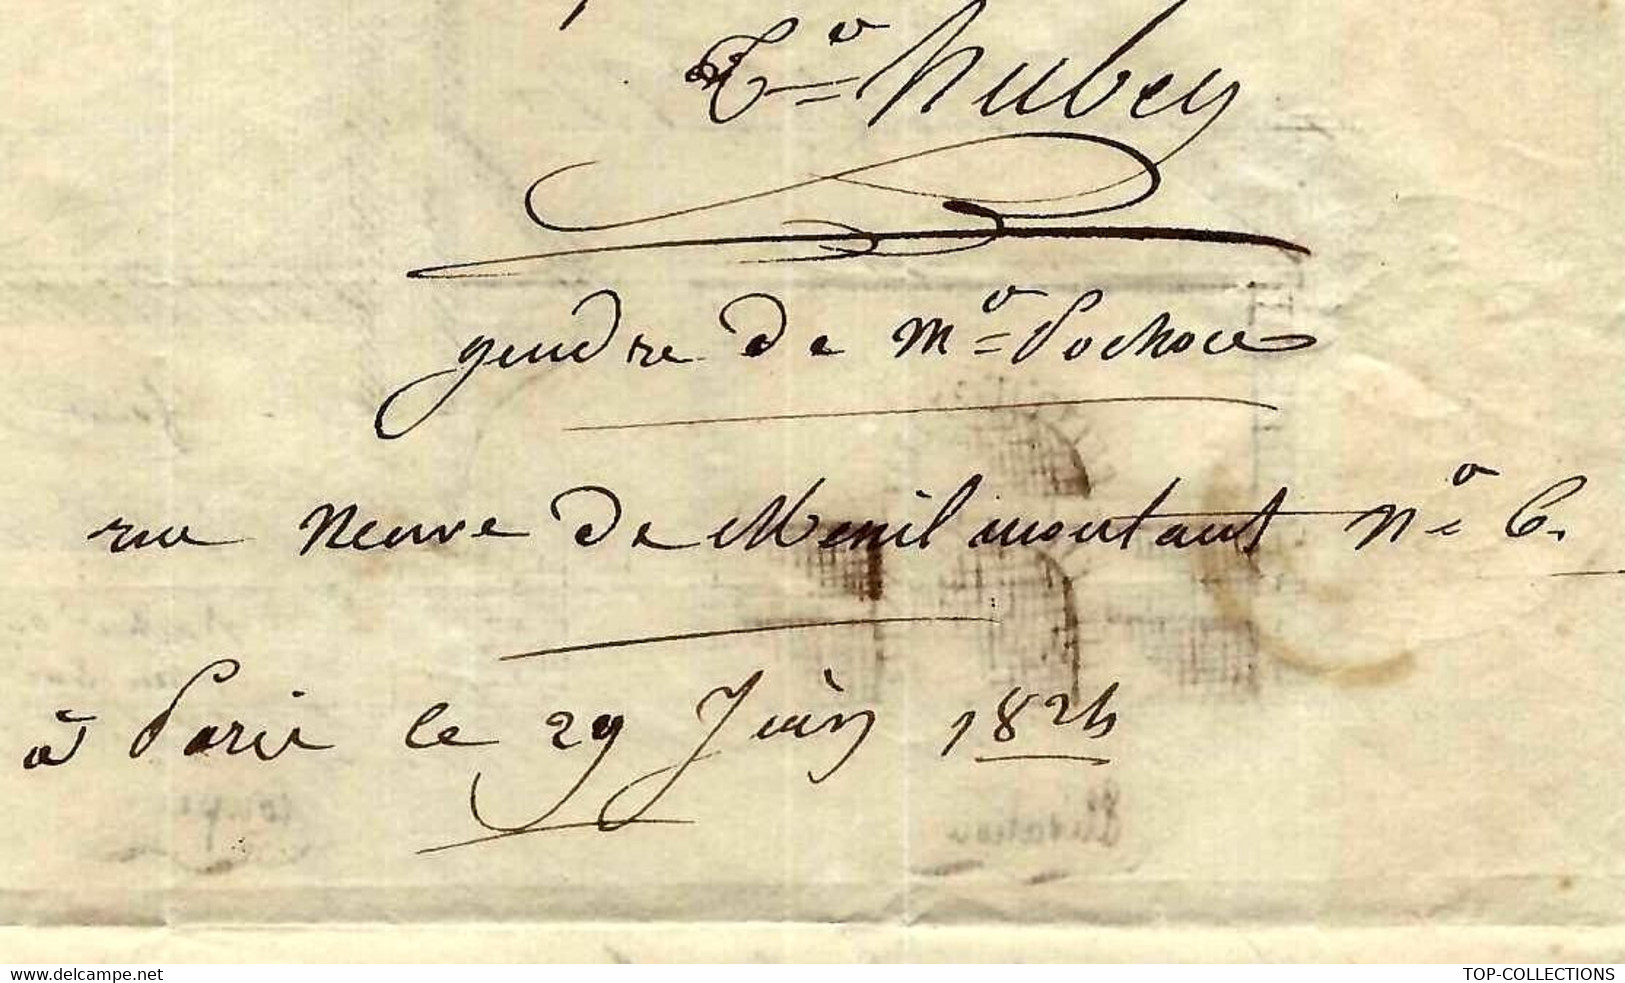 Tº= Hubey
gendre de Mº= Pochoce
rue Neuve de Menilmontant Nº= 6.
à Paris le 29 Juin 1824
www.delcampe.net
TOP-COLLECTIONS